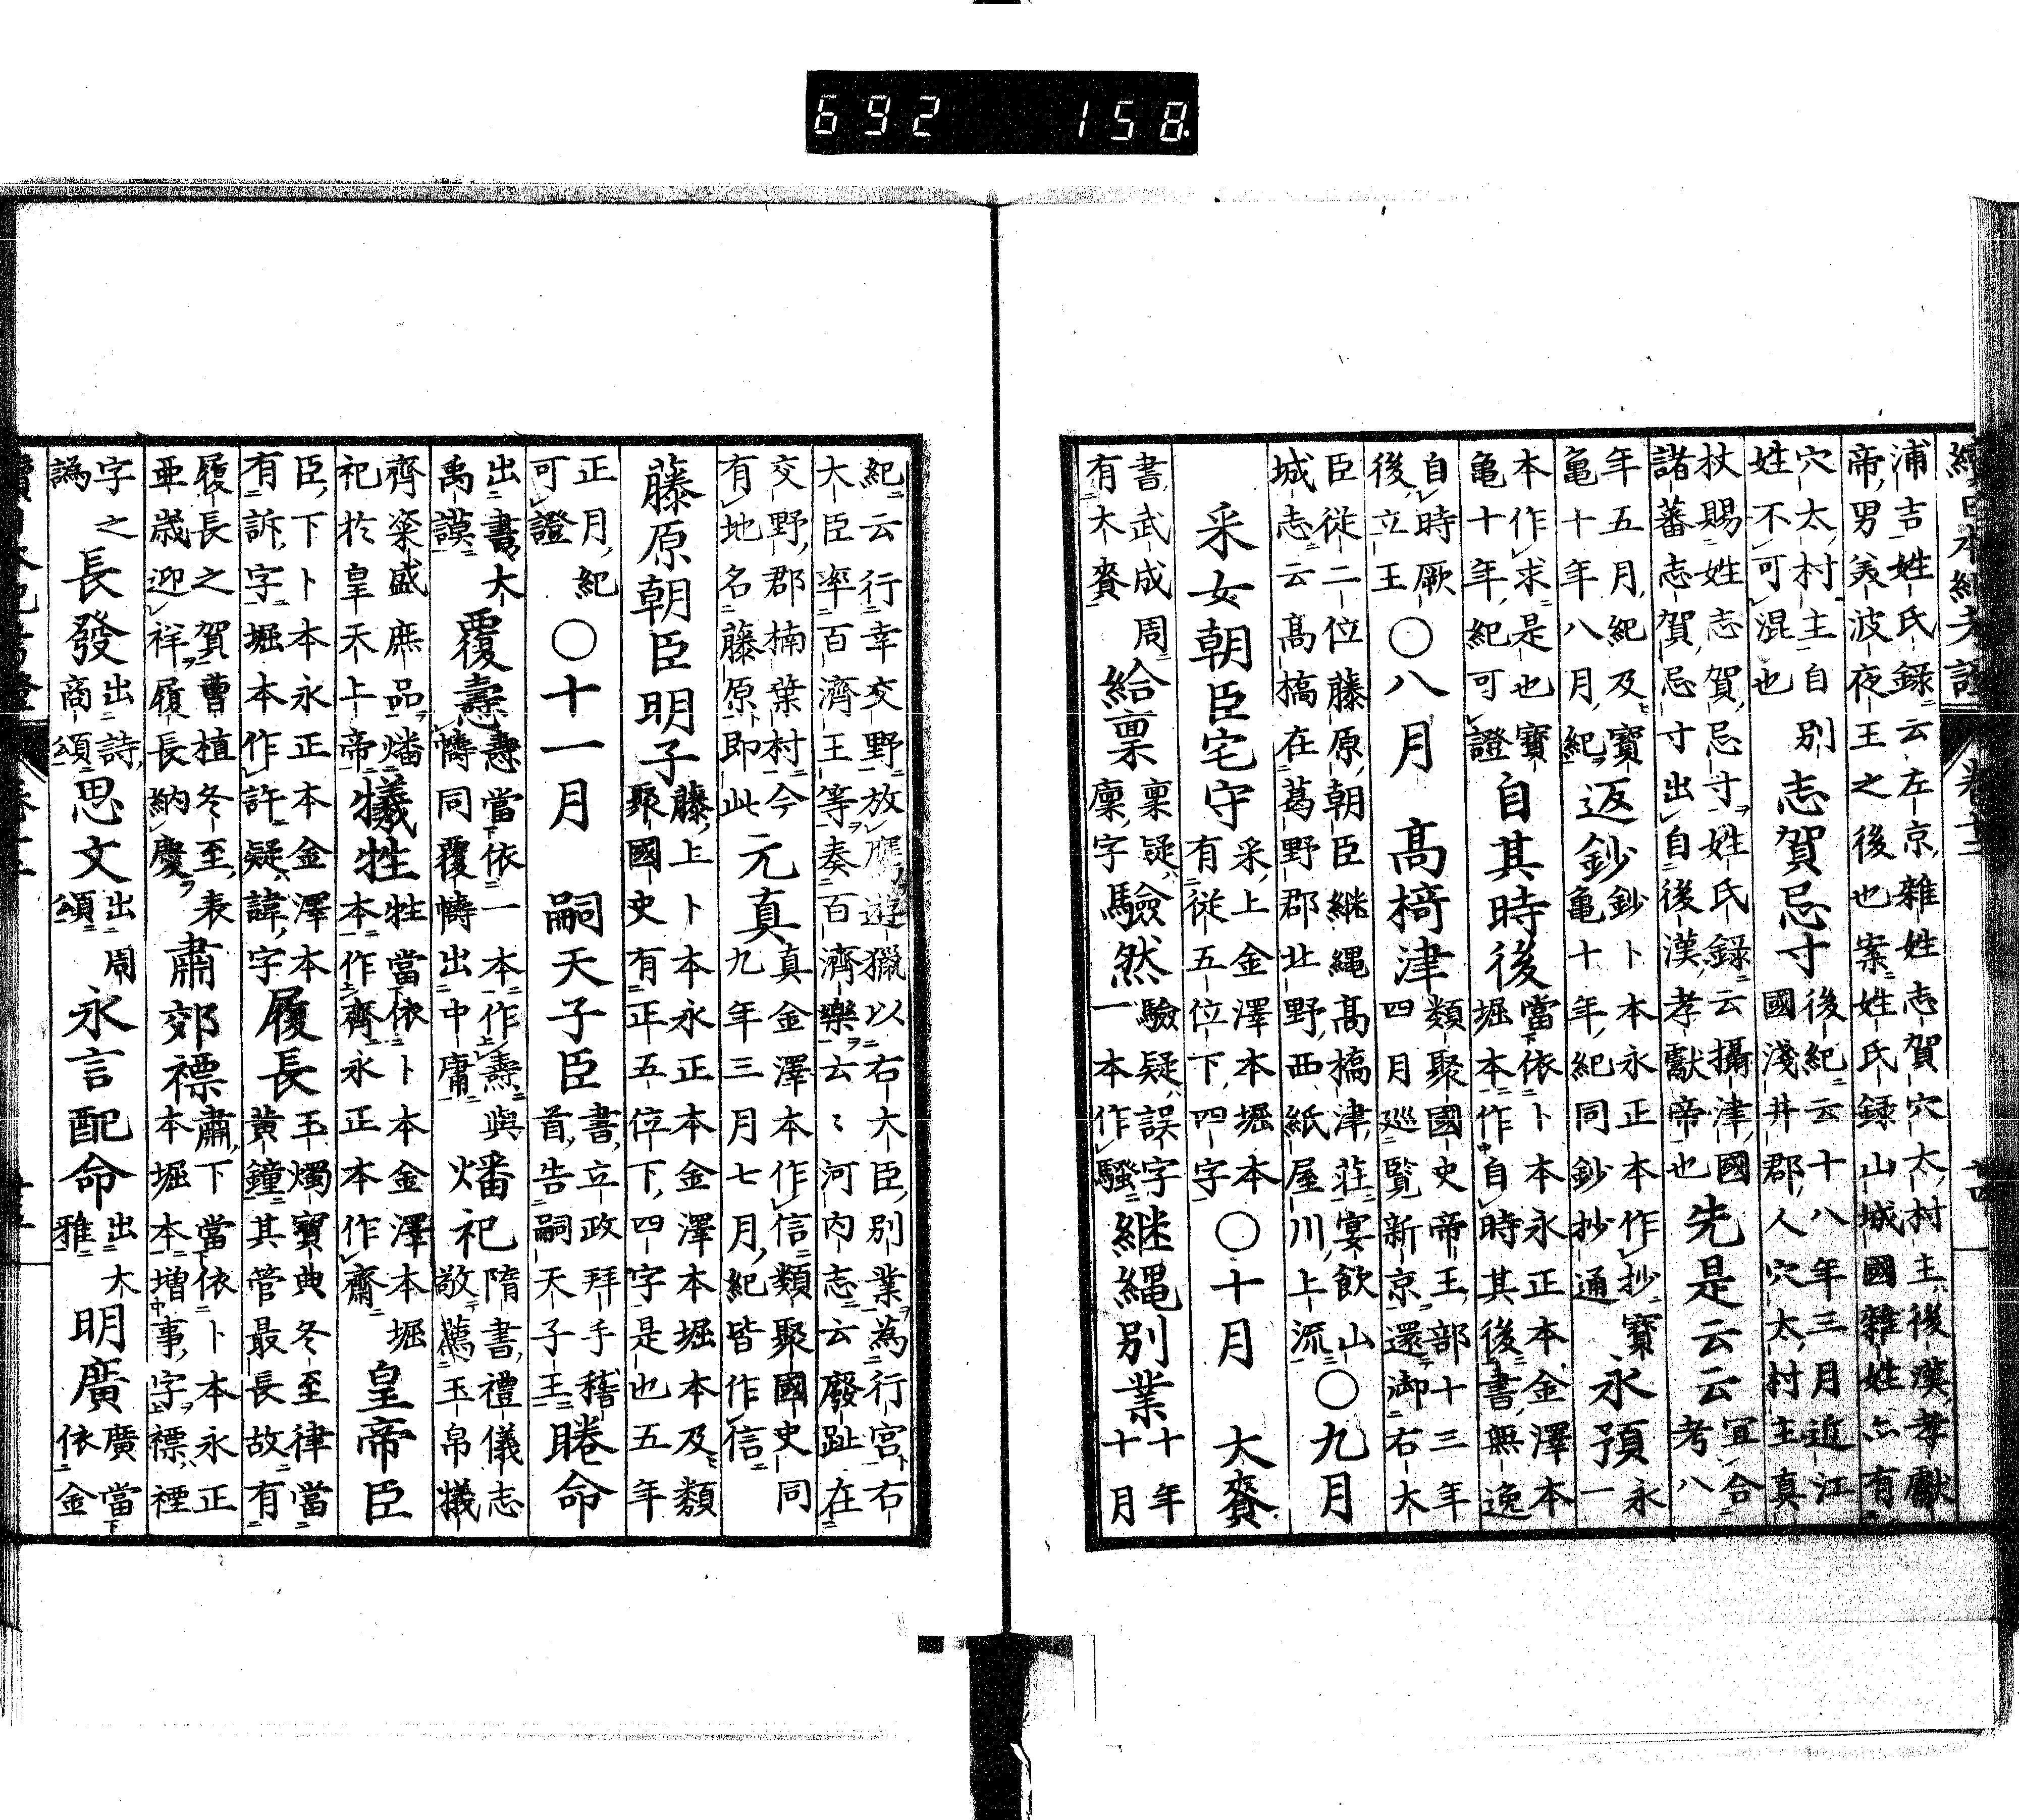 692 158
續日本紀考證 卷十二 廿四
浦吉姓氏録云左京雜姓志賀穴太村主後漢孝獻
帝男美波夜王之後也案姓氏録山城國雜姓亦有
穴太村主自別
姓不可混也
志賀忌寸
後紀云十八年三月近江
國淺井郡人穴太村主真
杖賜姓志賀忌寸姓氏録云攝津國
諸蕃志賀忌寸出自後漢孝獻帝也
先是云云
宜合
考八
年五月紀及寶
亀十年八月紀
返鈔
鈔卜本永正本作抄寶
亀十年紀同鈔抄通
永預
永
一
本作求是也寶
亀十年紀可證
自其時後
當依卜本永正本金澤本
堀本作自時其後書無逸
自時厥
後立王
○八月
高椅津
類聚國史帝王部十三年
四月廵覧新京還御右大
臣從二位藤原朝臣継縄高槁津莊宴飲
城志云高槁在葛野郡北野西紙屋川上流
山
○九月
采女朝臣宅守
采上金澤本堀本
有從五位下四字
○十月
大賚
書武成
有大賚
周
給稟
稟疑
廩字
驗然
驗疑誤字
一本作騷
継縄別業
十年
十月
紀云行幸交野放鷹遊獵以右大臣別業為行宮右
大臣率百濟王等奏百濟樂云〻河内志云廢趾在
交野郡楠葉村今
有地名藤原即此
元真
真金澤本作信類聚國史同
九年三月七月紀皆作信
藤原朝臣明子
藤上卜本永正本金澤本堀本及類
聚國史有正五位下四字是也五年
正月紀
可證
○十一月
嗣天子臣
書立政拜手稽
首告嗣天子王
睠命
出書大
禹謨
覆燾
燾當依一本作燾與
幬同覆幬出中庸
燔祀
隋書禮儀志
敬薦玉帛犠
齊粢盛庶品燔
祀於皇天上帝
犠牲
牲當依卜本金澤本堀
本作齊永正本作齋
皇帝臣
臣下卜本永正本金澤本
有訴字堀本作許疑諱字
履長
玉燭寶典冬至律當
黄鐘其管最長故有
履長之賀曹植冬至表
亜歳迎祥履長納慶
肅郊禋
肅下當依卜本永正
本堀本増事字禋禋
字之
譌
長發
出詩
商頌
思文
出周
頌
永言配命
出大
雅
明廣
廣當
依金